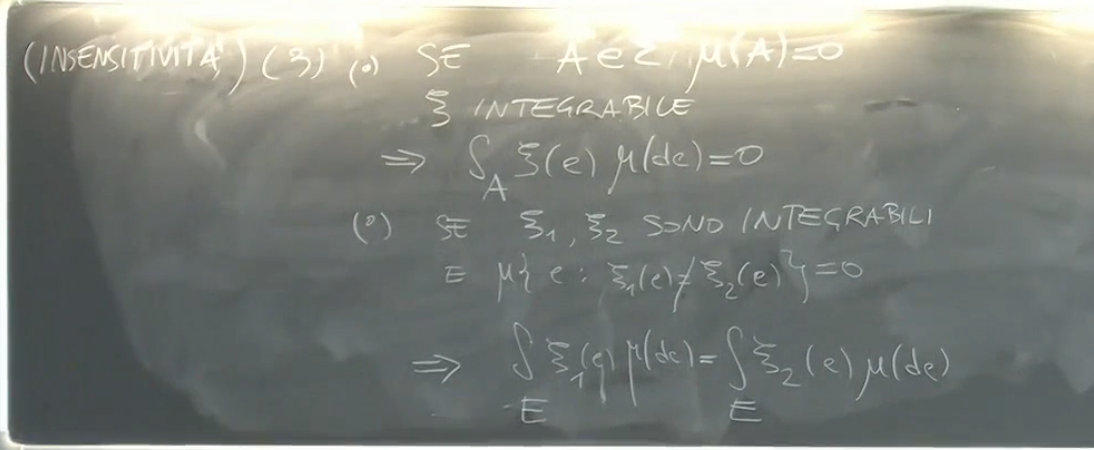 (INSENSITIVITÀ) (3) (•) SE A ∈ Σ, μ(A)=0
ξ INTEGRABILE
⇒ ∫_A ξ(e) μ(de)=0
(•) SE ξ₁, ξ₂ SONO INTEGRABILI
E μ{e : ξ₁(e)≠ξ₂(e)}=0
⇒ ∫_E ξ₁(e) μ(de)=∫_E ξ₂(e) μ(de)